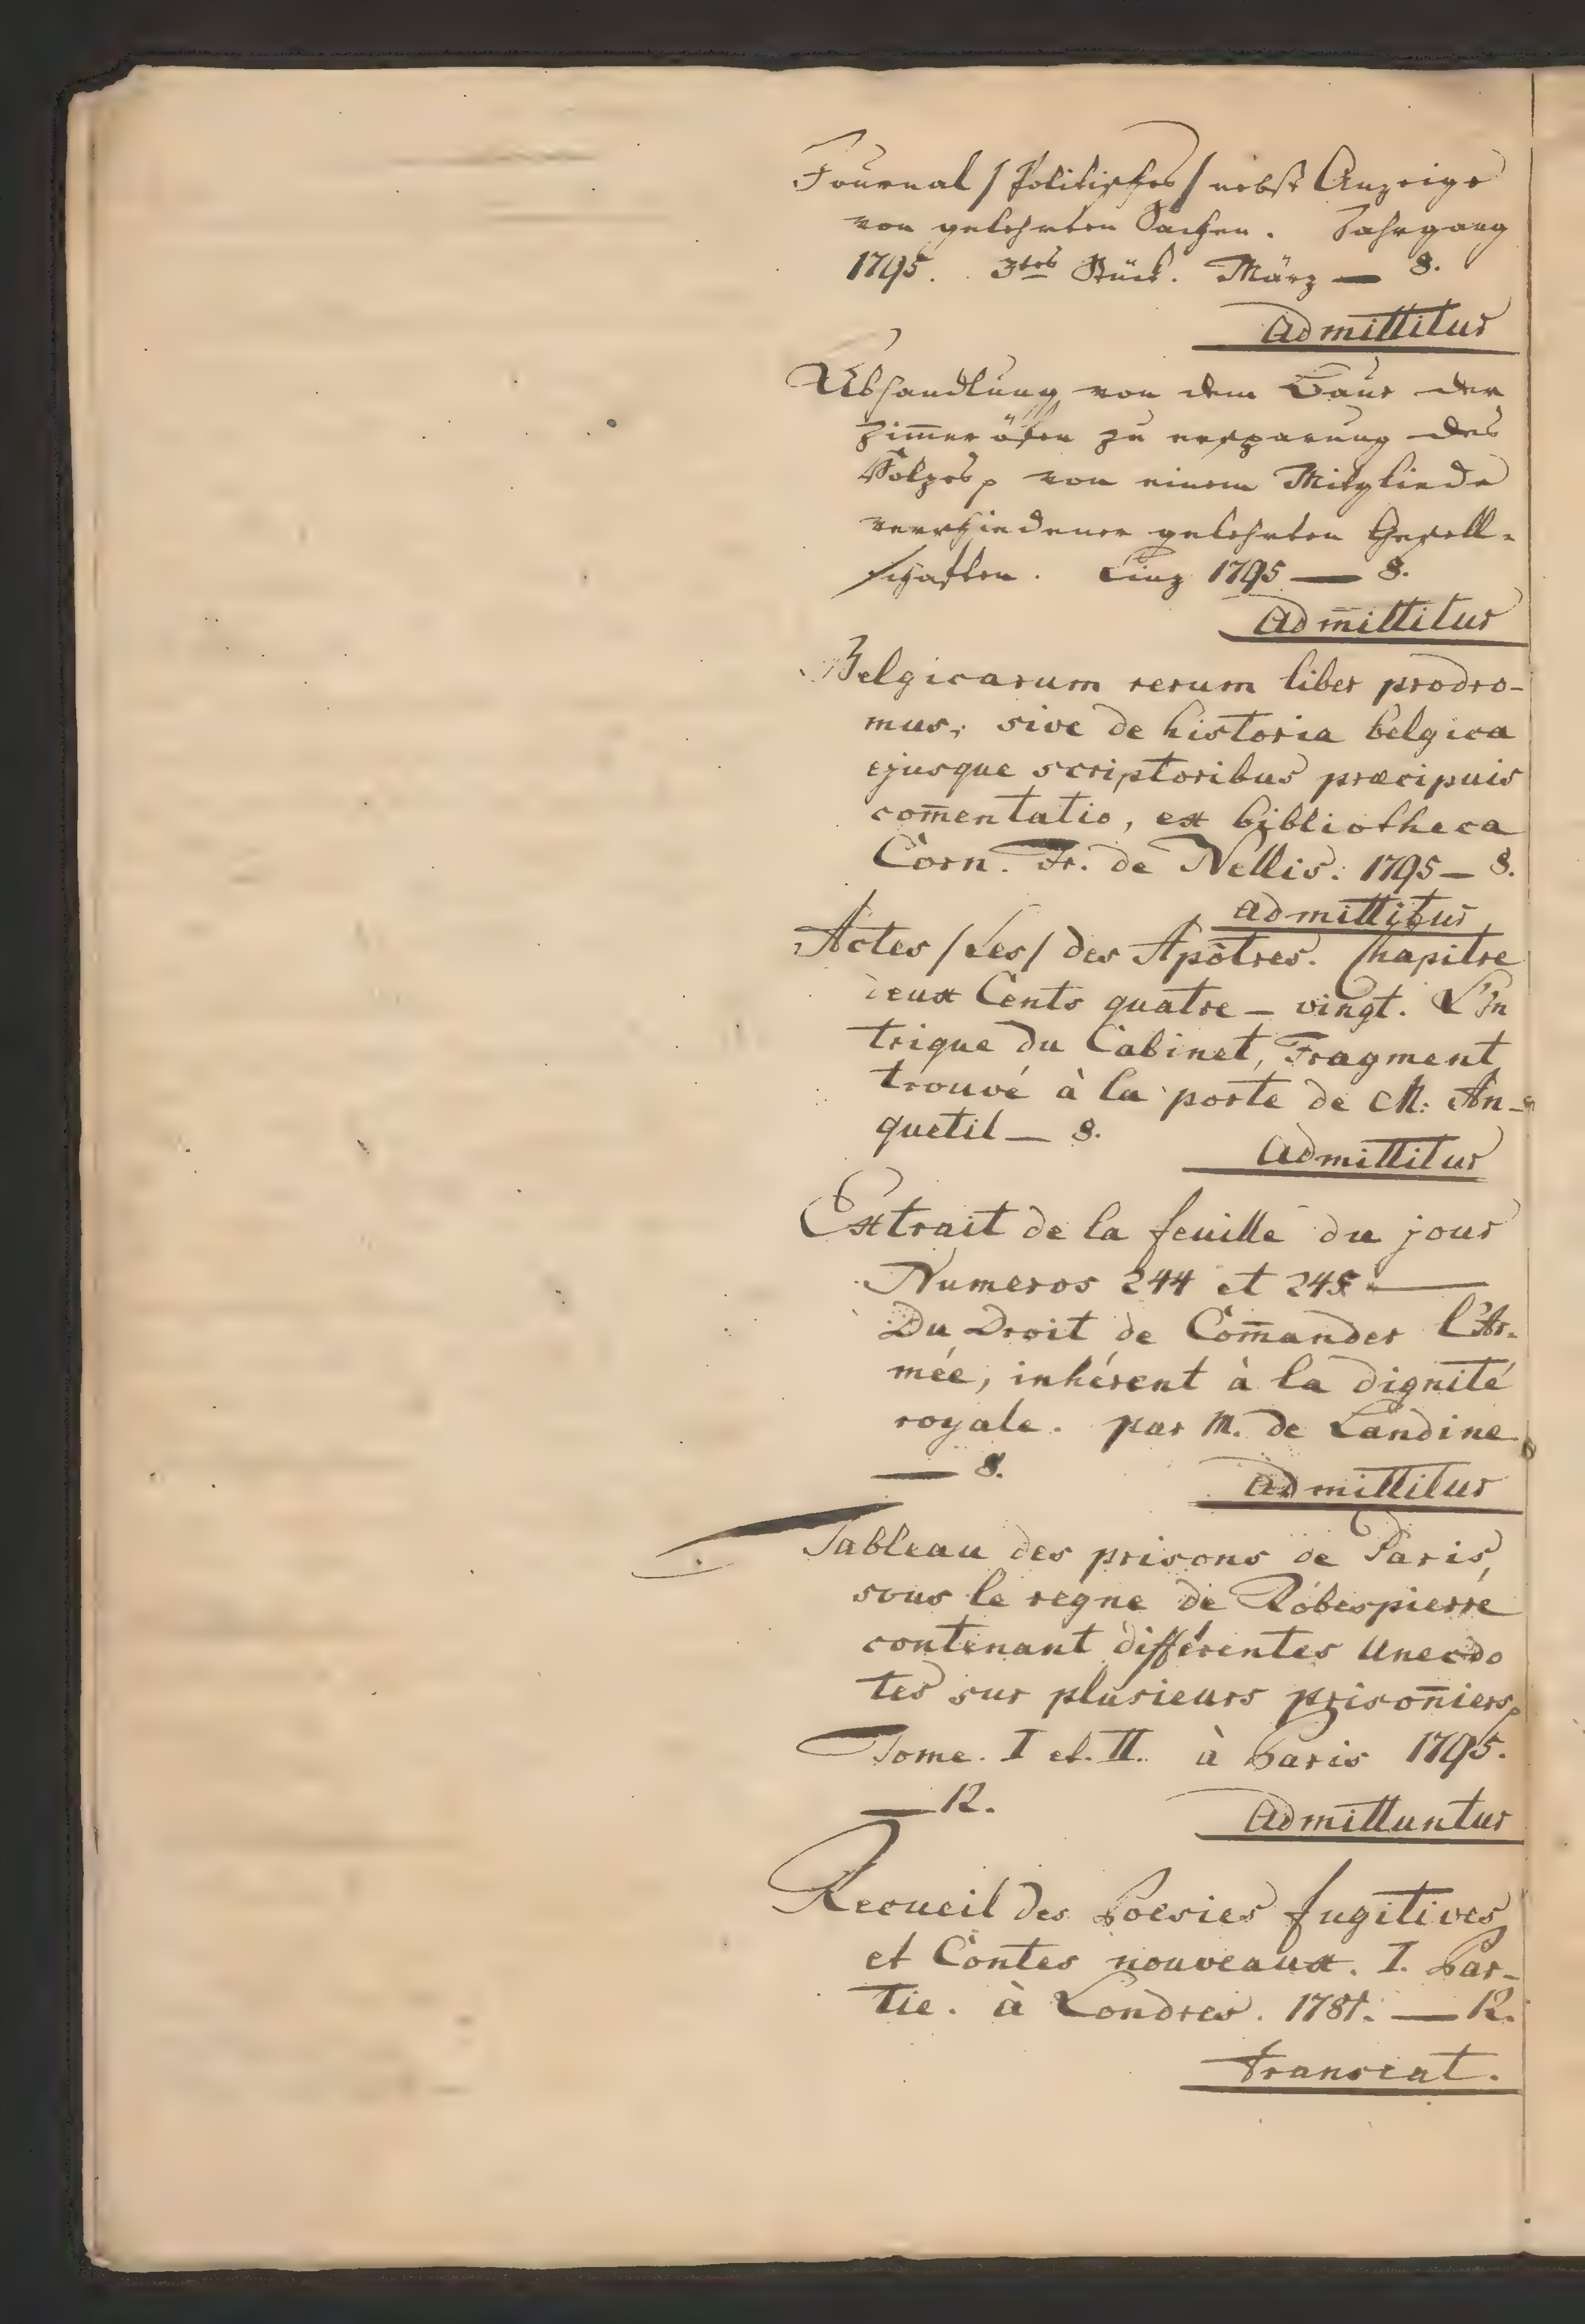 Journal /Politisches/ nebst Anzeige
von gelehrten Sachen. Jahrgang
1795. 3tes Stück. März — 8.
Admittitur
Abhandlung von dem Baue der
Zim̅eröfen zu ersparung des
Holzes, von einem Mitgliede
verschiedener gelehrten Gesell-
schaften. Linz 1795 — 8.
Adm̅ittitur
Belgicarum rerum liber prodro-
mus, sive de historia belgica
ejusque scriptoribus præcipuis
com̅entatio, ex bibliotheca
Corn. Fr. de Nellis. 1795 — 8.
admittitur
Actes /Les/ des Apôtres. Chapitre
deux Cents quatre - vingt. L'In
trigue du Cabinet, Fragment
trouvé à la porte de M. An-
quetil — 8.
Admittitur
Extrait de la feuille du jour
Numeros 244 et 245 —
Du Droit de Com̅ander l'Ar-
mée, inhérent à la dignité
royale. par M. de Landine
— 8.
Admittitur
Tableau des prisons de Paris,
sous le regne de Robespierre
contenant différentes Anecdo
tes sur plusieurs prison̅iers,
Tome. I et. II. à Paris 1795.
— 12.
Admittuntur
Recueil des Poesies fugitives
et Contes nouveaux. I. Par-
tie. à Londres. 1781. — 12.
Transeat.